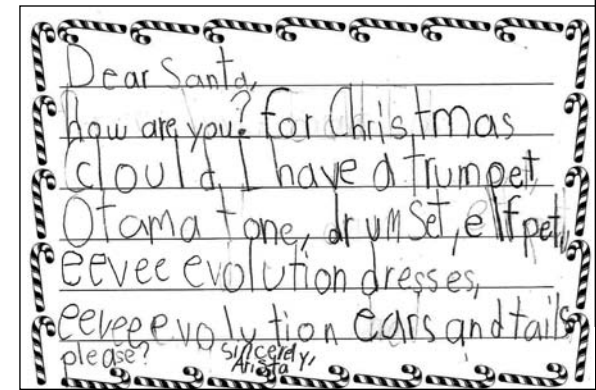 Dear Santa,
how are you? for Christmas
Clould I have a Trumpet,
Otamatone, drum Set, elf pet,
eevee evolution dresses,
eeveeevolution ears and tails
please? sincerely,
Arista